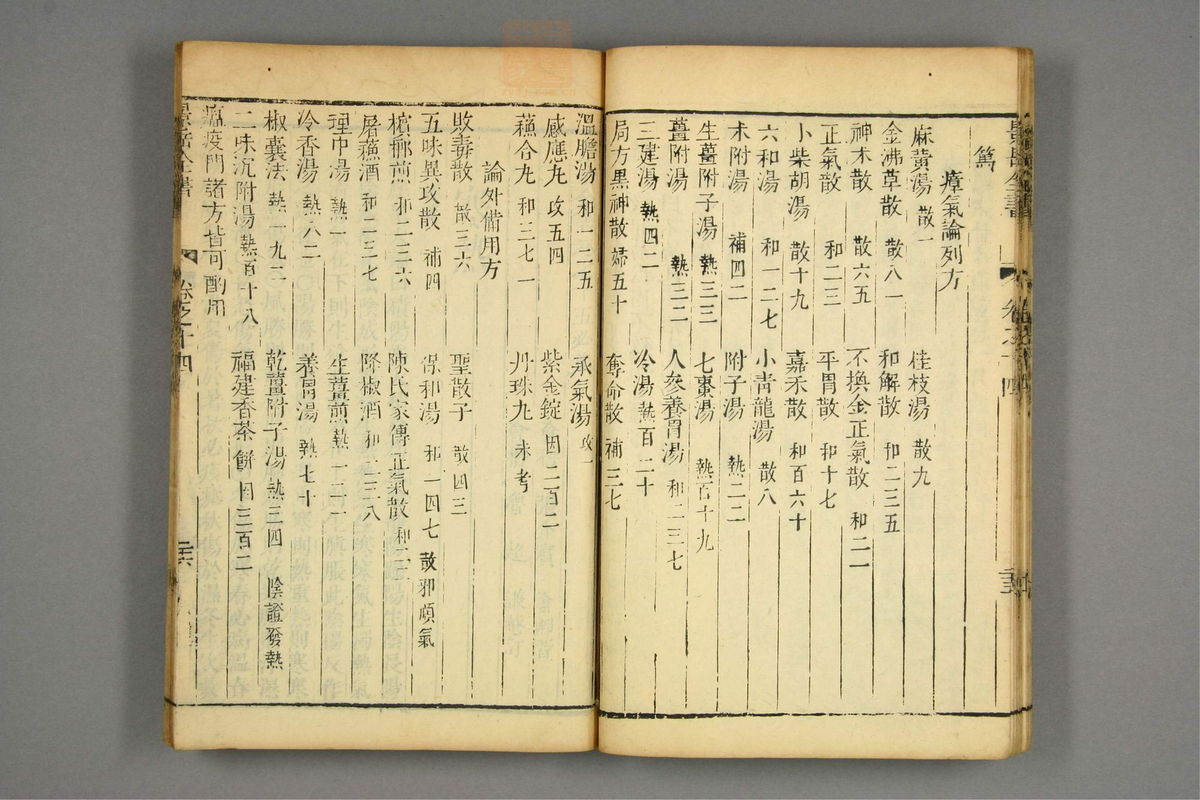 景岳全書 卷之十四
篤
瘴氣論列方
麻黃湯 散一 桂枝湯 散九
金沸草散 散八一 和解散 和二三五
神术散 散六五 不換金正氣散 和二一
正氣散 和二三 平胃散 和十七
小柴胡湯 散十九 嘉禾散 和百六十
六和湯 和一二七 小青龍湯 散八
术附湯 補四二 附子湯 熱二二
生薑附子湯 熱三三 七棗湯 熱百十九
薑附湯 熱三二 人參養胃湯 和二三七
三建湯 熱四二 冷湯 熱百二十
局方黑神散 婦五十 奪命散 補三七
溫膽湯 和一二五 承氣湯 攻一
感應丸 攻五四 紫金錠 因二百二
蘇合丸 和三七一 丹珠丸 未考
論外備用方
敗毒散 散三六 聖散子 散四三
五味異攻散 補四 保和湯 和一四七 散邪順氣
檳榔煎 和二三六 陳氏家傳正氣散 和二三
屠蘇酒 和二三七 降椒酒 和二三八
理中湯 熱一 生薑煎 熱一二一
冷香湯 熱八二 養胃湯 熱七十
椒囊法 熱一九二 乾薑附子湯 熱三四 陰證發熱
二味沉附湯 熱百十八 福建香茶餅 因三百二
瘟疫門諸方皆可酌用
景岳全書 卷之十四